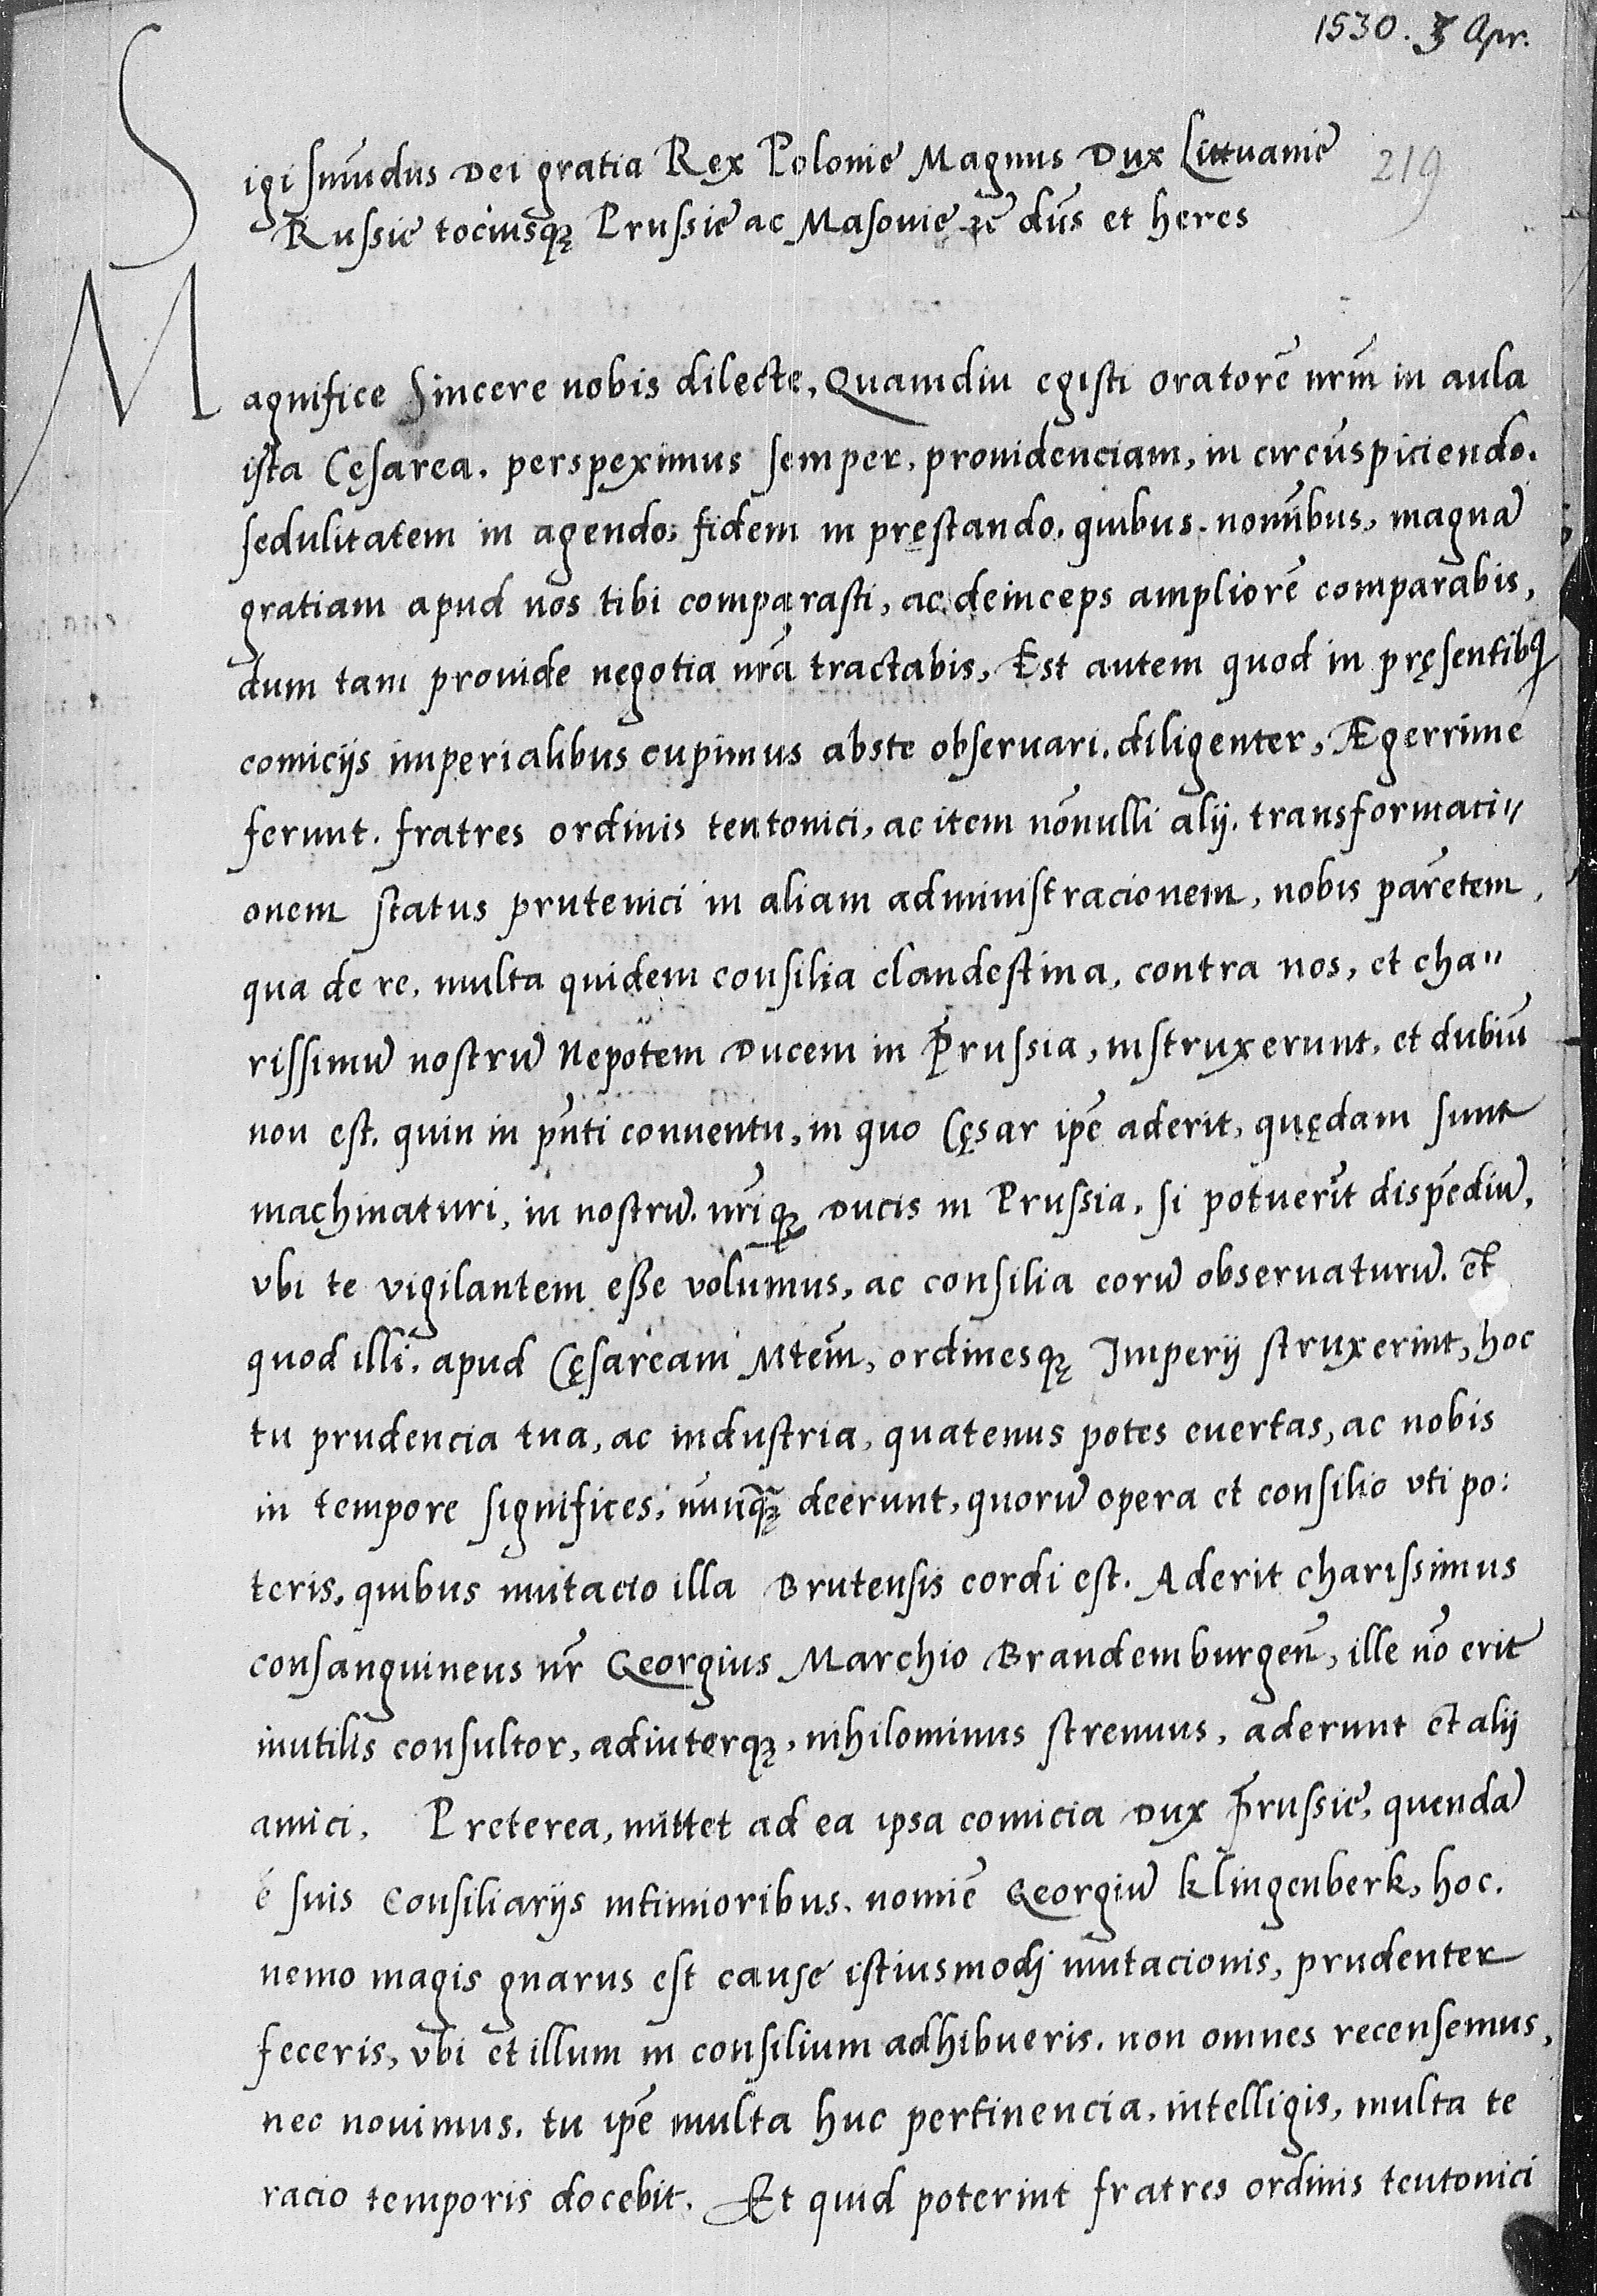 1530. 3 Apr.
219
Sigismūdus Dei gratia Rex Polonie Magnus Dux Littuanie
Russie tociusq₃ Prussie ac Masovie zc̄ dūs et heres
Magnifice Sincere nobis dilecte, Quamdiu egisti oratorē nrm̄ in aula
ista Cęsarea. perspeximus semper, providenciam, in circūspiciendo.
sedulitatem in agendo, fidem in pręstando, quibus. nomībus, magnā
gratiam apud nos tibi comparasti, ac deinceps ampliorē comparabis,
dum tam provide negotia nrā tractabis, Est autem quod in pręsentibꝰ
comicijs imperialibus cupimus abste observari. diligenter, Ægerrime
ferunt. fratres ordinis teutonici, ac item nōnulli alij. transformaci//
onem status prutenici in aliam administracionem, nobis parētem,
qua de re, multa quidem consilia clandestina, contra nos, et cha//
rissimū nostrū Nepotem Ducem in Prussia, instruxerunt, et dubiū
non est. quin in pn̄ti conventu, in quo Cęsar ipē aderit, quędam sunt
machinaturi, in nostrū. nriq₃ Ducis in Prussia, si potuerīt dispēdiū,
vbi te vigilantem esse volumus, ac consilia eorū observaturū. et
quod illi. apud Cęsaream Mtem̄, ordinesq₃ Imperij struxerint, hoc
tu prudencia tua, ac industria, quatenus potes evertas, ac nobis
in tempore significes, nunq̄₃ deerunt, quorū opera et consilio vti po:
teris, quibus mutacio illa Brutensis cordi est. Aderit charissimus
consanguineus nr̄ Georgius Marchio Brandemburgen̄, ille nō erit
inutilis consultor, adiutorq₃, nihilominus strenuus, aderunt et alij
amici, Preterea, mittet ad ea ipsa comicia Dux Prussie, quendā
é suis Consiliarijs intimioribus. nomiē Georgiū Klingenberk, hoc.
nemo magis gnarus est cause istiusmodj mutacionis, prudenter
feceris, vbi et illum in consilium adhibueris. non omnes recensemus,
nec novimus. tu ipē multa huc pertinencia, intelligis, multa te
racio temporis docebit. Et quid poterint fratres ordinis teutonici